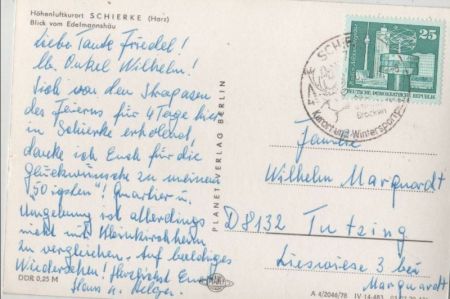 Höhenluftkurort SCHIERKE (Harz)
Blick vom Edelmannshäu
Liebe Tante Friedel!
Lb. Onkel Wilhelm!
Sich von den Strapazen
des Feierns für 4 Tage hier
in Schierke erholend,
danke ich Euch für die
Glückwünsche zu meinem
"50igsten"! Quartier u.
Umgebung ist allerdings
nicht mit Kleinkirchheim
zu vergleichen. Auf baldiges
Wiedersehen! Herzlichst Eure
Hans u. Helga
DDR 0,25 M
PLANET-VERLAG BERLIN
25
DEUTSCHE DEMOKRATISCHE REPUBLIK
SCHIE
Brocken
Kurort und Wintersport
Familie
Wilhelm Marquardt
D8132 Tutzing
Lieswiese 3 bei
Marquardt
A 4/2046/78 IV-14-483